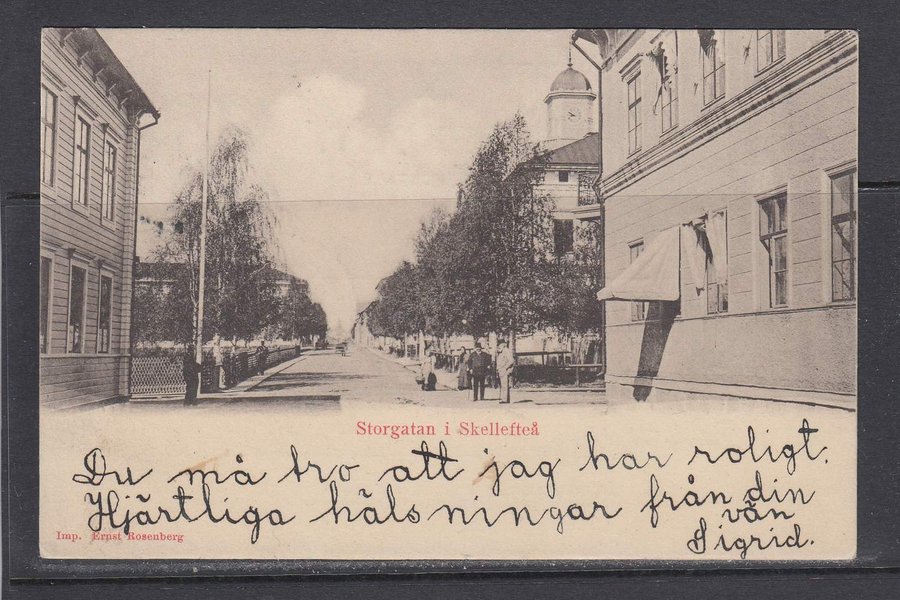 Storgatan i Skellefteå
Du må tro att jag har roligt.
Hjärtliga hälsningar från din
vän
Sigrid.
Imp. Ernst Rosenberg